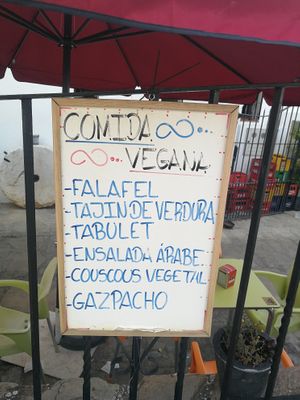 COMIDA
VEGANA
-FALAFEL
-TAJIN DE VERDURA
-TABULET
-ENSALADA ÁRABE
-COUSCOUS VEGETAL
-GAZPACHO